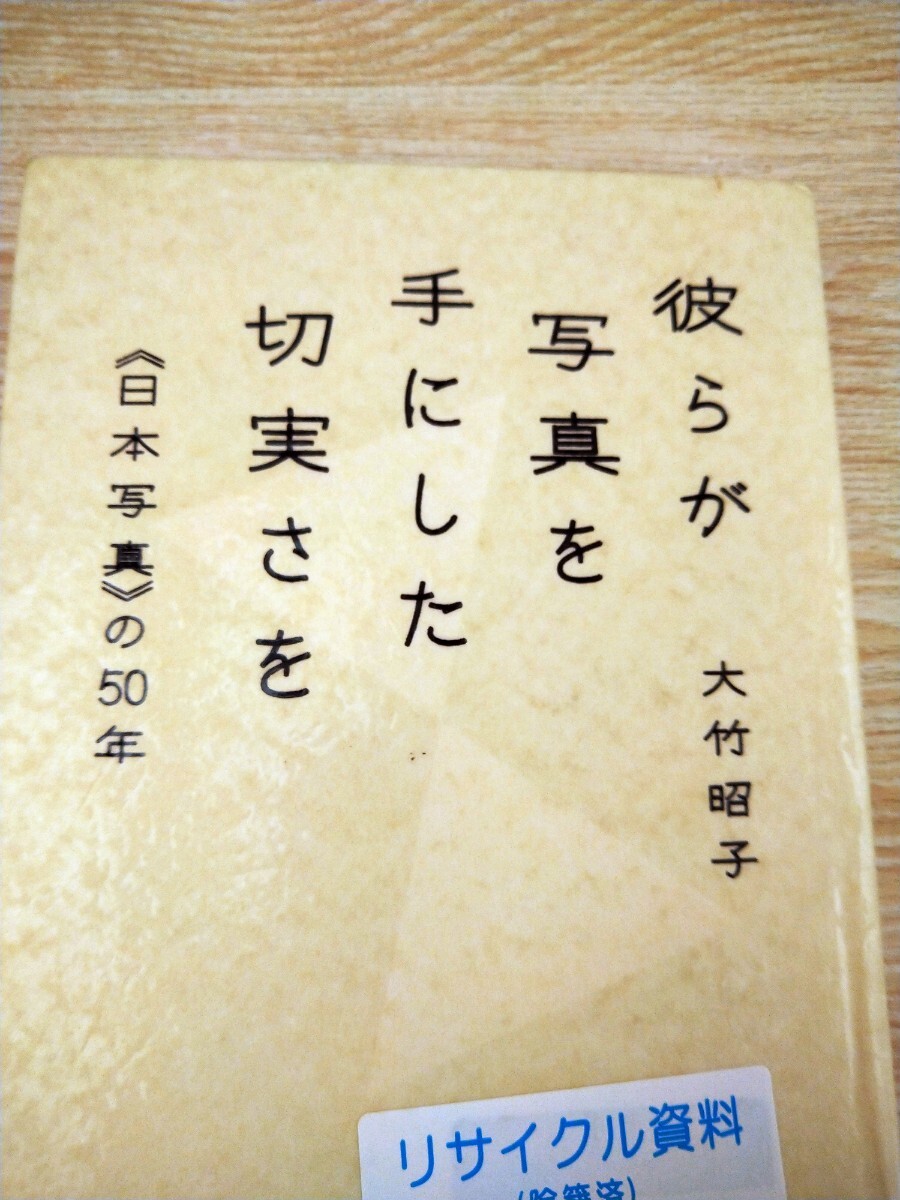 彼らが
写真を
手にした
切実さを
《日本写真》の50年
大竹昭子
リサイクル資料
(除籍済)